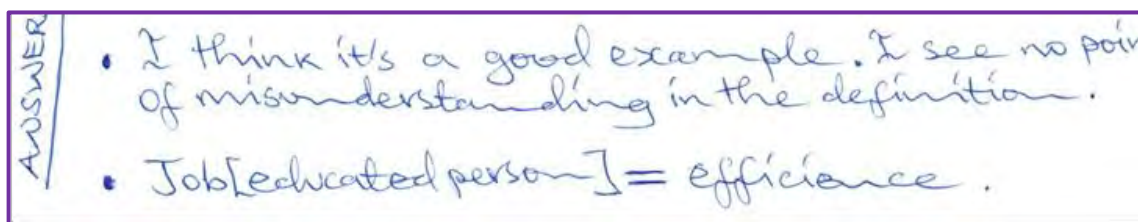 ANSWER
• I think it's a good example. I see no poin
of misunderstanding in the definition.
• Job[educated person] = efficience.